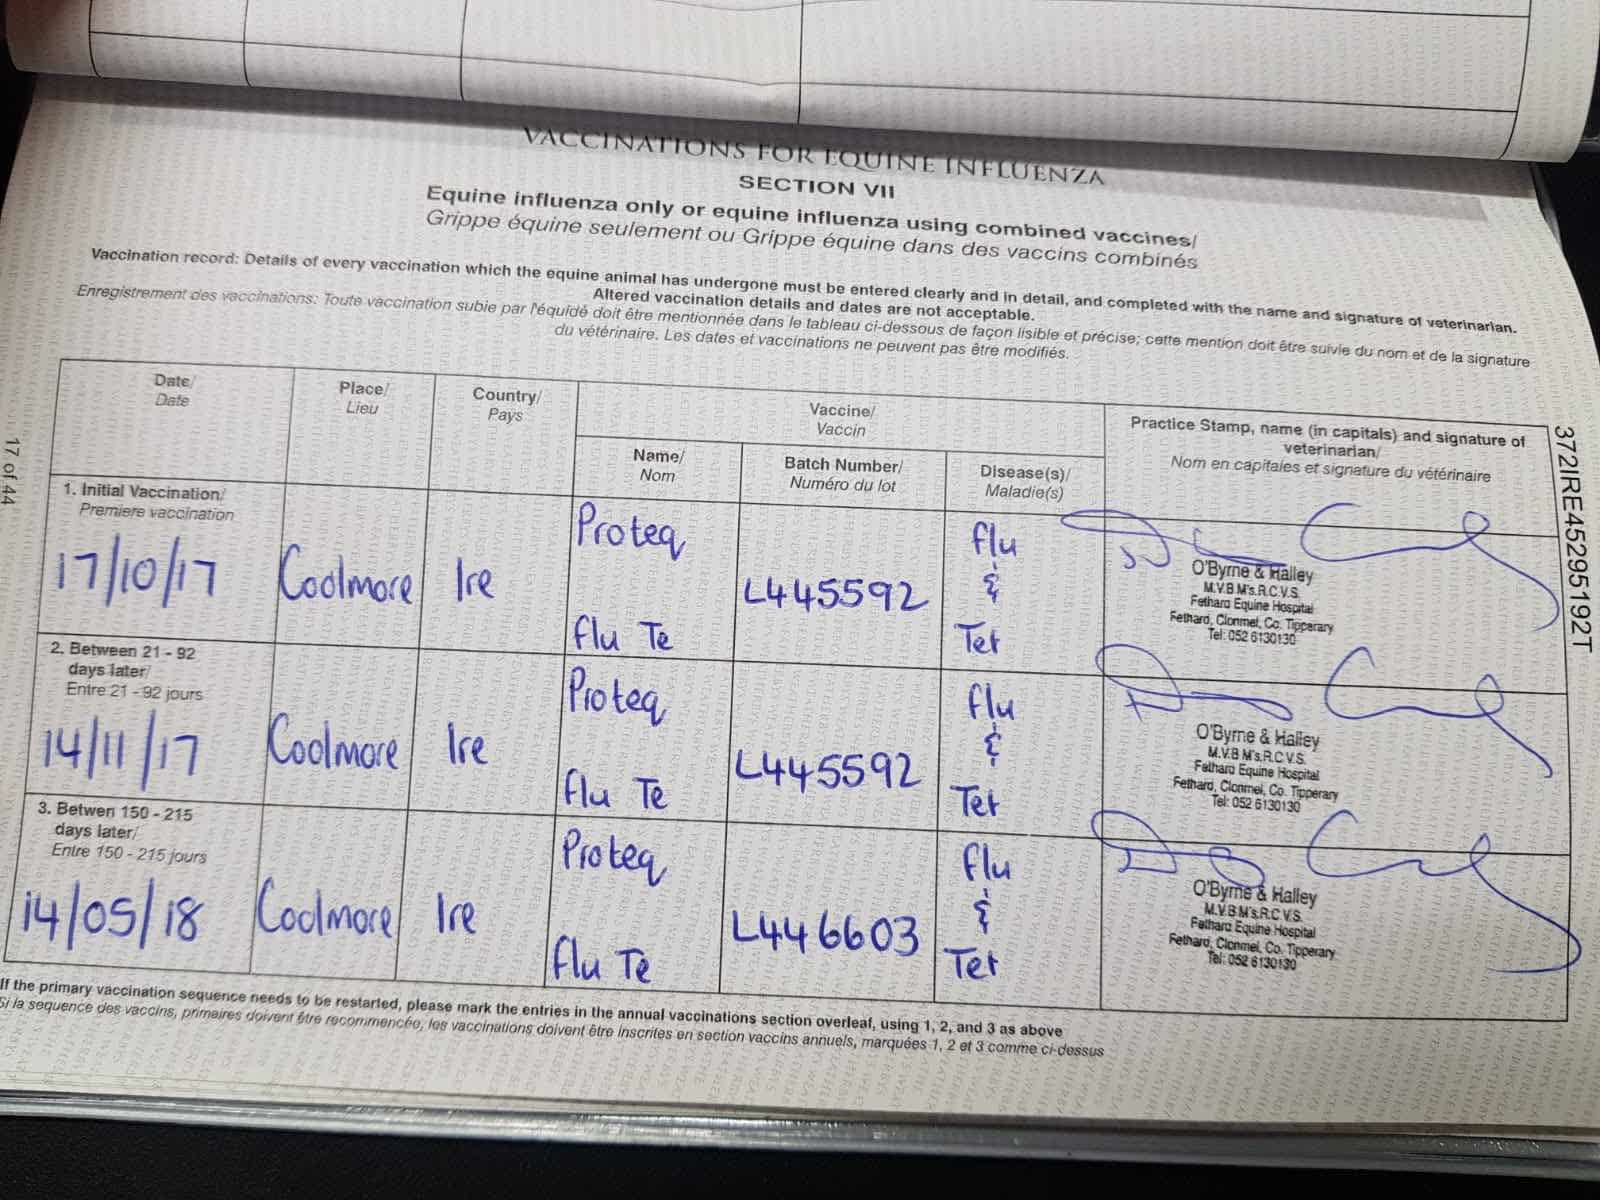 VACCINATIONS FOR EQUINE INFLUENZA
SECTION VII
Equine influenza only or equine influenza using combined vaccines/
Grippe équine seulement ou Grippe équine dans des vaccins combinés
Vaccination record: Details of every vaccination which the equine animal has undergone must be entered clearly and in detail, and completed with the name and signature of veterinarian.
Altered vaccination details and dates are not acceptable.
Enregistrement des vaccinations: Toute vaccination subie par l'équidé doit être mentionnée dans le tableau ci-dessous de façon lisible et précise; cette mention doit être suivie du nom et de la signature
du vétérinaire. Les dates et vaccinations ne peuvent pas être modifiés.
Date/
Date
Place/
Lieu
Country/
Pays
Vaccine/
Vaccin
Name/
Nom
Batch Number/
Numéro du lot
Disease(s)/
Maladie(s)
Practice Stamp, name (in capitals) and signature of
veterinarian/
Nom en capitales et signature du vétérinaire
1. Initial Vaccination/
Premiere vaccination
17/10/17
Coolmore
Ire
Proteq
flu Te
L445592
flu
&
Tet
O'Byrne & Halley
M.V.B M's.R.C.V.S.
Fethard Equine Hospital
Fethard, Clonmel, Co. Tipperary
Tel: 052 6130130
2. Between 21 - 92
days later/
Entre 21 - 92 jours
14/11/17
Coolmore
Ire
Proteq
flu Te
L445592
flu
&
Tet
O'Byrne & Halley
M.V.B M's.R.C.V.S.
Fethard Equine Hospital
Fethard, Clonmel, Co. Tipperary
Tel: 052 6130130
3. Betwen 150 - 215
days later/
Entre 150 - 215 jours
14/05/18
Coolmore
Ire
Proteq
flu Te
L446603
flu
&
Tet
O'Byrne & Halley
M.V.B M's.R.C.V.S.
Fethard Equine Hospital
Fethard, Clonmel, Co. Tipperary
Tel: 052 6130130
If the primary vaccination sequence needs to be restarted, please mark the entries in the annual vaccinations section overleaf, using 1, 2, and 3 as above
Si la sequence des vaccins, primaires doivent être recommencée, les vaccinations doivent être inscrites en section vaccins annuels, marquées 1, 2 et 3 comme ci-dessus
17 of 44
372IRE45295192T